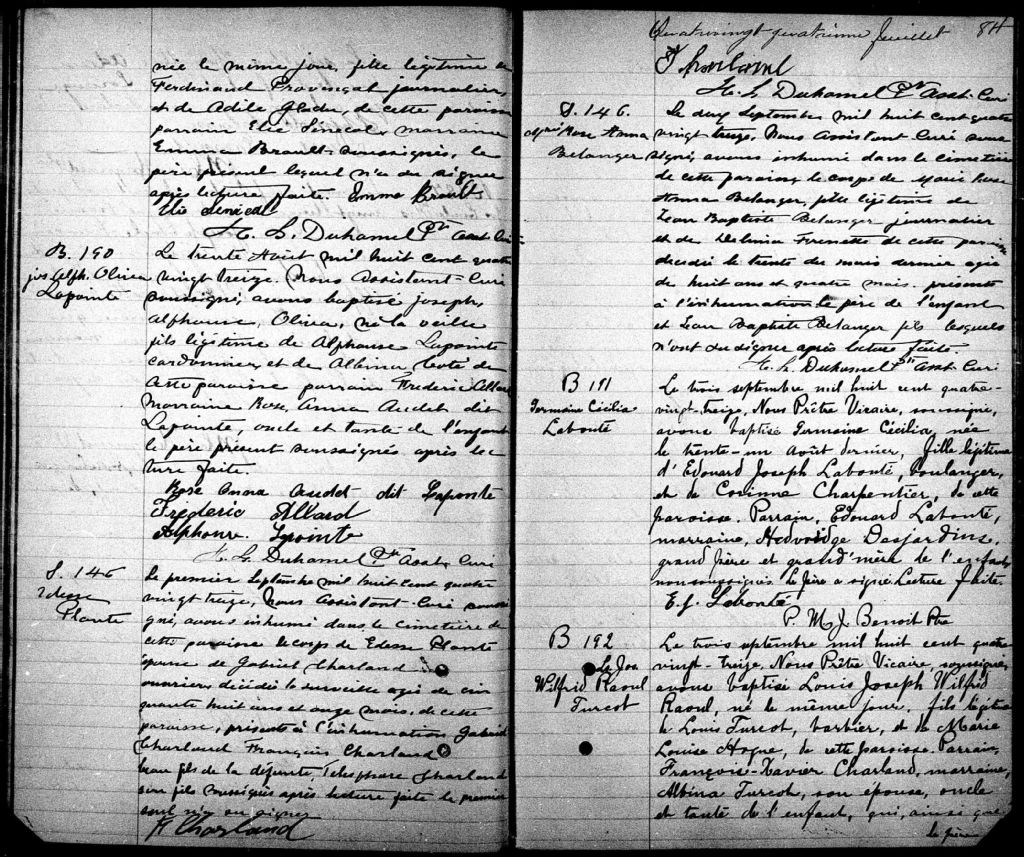 née le même jour, fille légitime de
Ferdinand Provençal journalier,
et de Adile Gladu, de cette paroisse
parrain Elie Sénécal, marraine
Emma Brault soussignés, le
père présent lequel n'a su signer
après lecture faite. Emma Brault
Elie Sénécal
H. L. Duhamel Ptre Asst. Curé
B. 190
Jos. Alph. Oliva
Lapointe
Le trente Août mil huit cent quatre
vingt treize. Nous Assistant-Curé
soussigné, avons baptisé Joseph,
Alphonse, Oliva, né la veille
fils légitime de Alphonse Lapointe
cordonnier, et de Albina Coté de
cette paroisse parrain Frédéric Allard
Marraine Rose, Anna Audet dit
Lapointe, oncle et tante de l'enfant
le père présent soussignés après lec
ture faite.
Rose Anna Audet dit Lapointe
Frédéric Allard
Alphonse Lapointe
H. L. Duhamel Ptre Asst. Curé
S. 145
Edesse
Plante
Le premier Septembre mil huit cent quatre
vingt treize, Nous Assistant-Curé soussi
gné, avons inhumé dans le cimetière de
cette paroisse le corps de Edesse Plante
épouse de Gabriel Charland
ouvrier, décédée la surveille agée de cin
quante huit ans et onze mois, de cette
paroisse, présents à l'inhumation Gabriel
Charland François Charland
beau fils de la défunte, Télesphore Charland
son fils soussignés après lecture faite le premier
seul n'a su signer
F Charland
Quatrevingt quatrième feuillet 84
T Charland
H. L. Duhamel Ptre Asst. Curé
S. 146.
Marie Rose Anna
Belanger
Le deux Septembre mil huit cent quatre
vingt treize, Nous Assistant Curé sous
signé, avons inhumé dans le cimetière
de cette paroisse, le corps de Marie Rose
Anna Belanger, fille légitime de
Jean Baptiste Belanger journalier
et de Delima Frenette de cette paroisse
décédée le trente du mois dernier agée
de huit ans et quatre mois. présents
à l'inhumation le père de l'enfant
et Jean Baptiste Belanger fils lesquels
n'ont su signer après lecture faite.
H. L. Duhamel Ptre Asst. Curé
B 191
Germaine Cécilia
Labonté
Le trois septembre, mil huit cent quatre-
vingt-treize, Nous Prêtre Vicaire, soussigné,
avons baptisé Germaine Cécilia, née
le trente-un Août dernier, fille légitime
d'Edouard Joseph Labonté, boulanger,
et de Corinne Charpentier, de cette
paroisse. Parrain, Edouard Labonté,
marraine, Hedvidge Desjardins,
grand père et grand'mère de l'enfant
non soussignés. Le père a signé Lecture faite.
E. J. Labonté
P. M. J. Benoit Ptre
B 192
Ls Jos
Wilfrid Raoul
Turcot
Le trois septembre mil huit cent quatre
vingt-treize, Nous Prêtre Vicaire, soussigné,
avons baptisé Louis Joseph Wilfrid
Raoul, né le même jour, fils légitime
de Louis Turcot, barbier, et de Marie
Louise Hogue, de cette paroisse. Parrain,
François-Xavier Charland, marraine,
Albina Turcot, son épouse, oncle
et tante de l'enfant, qui, ainsi que
le père